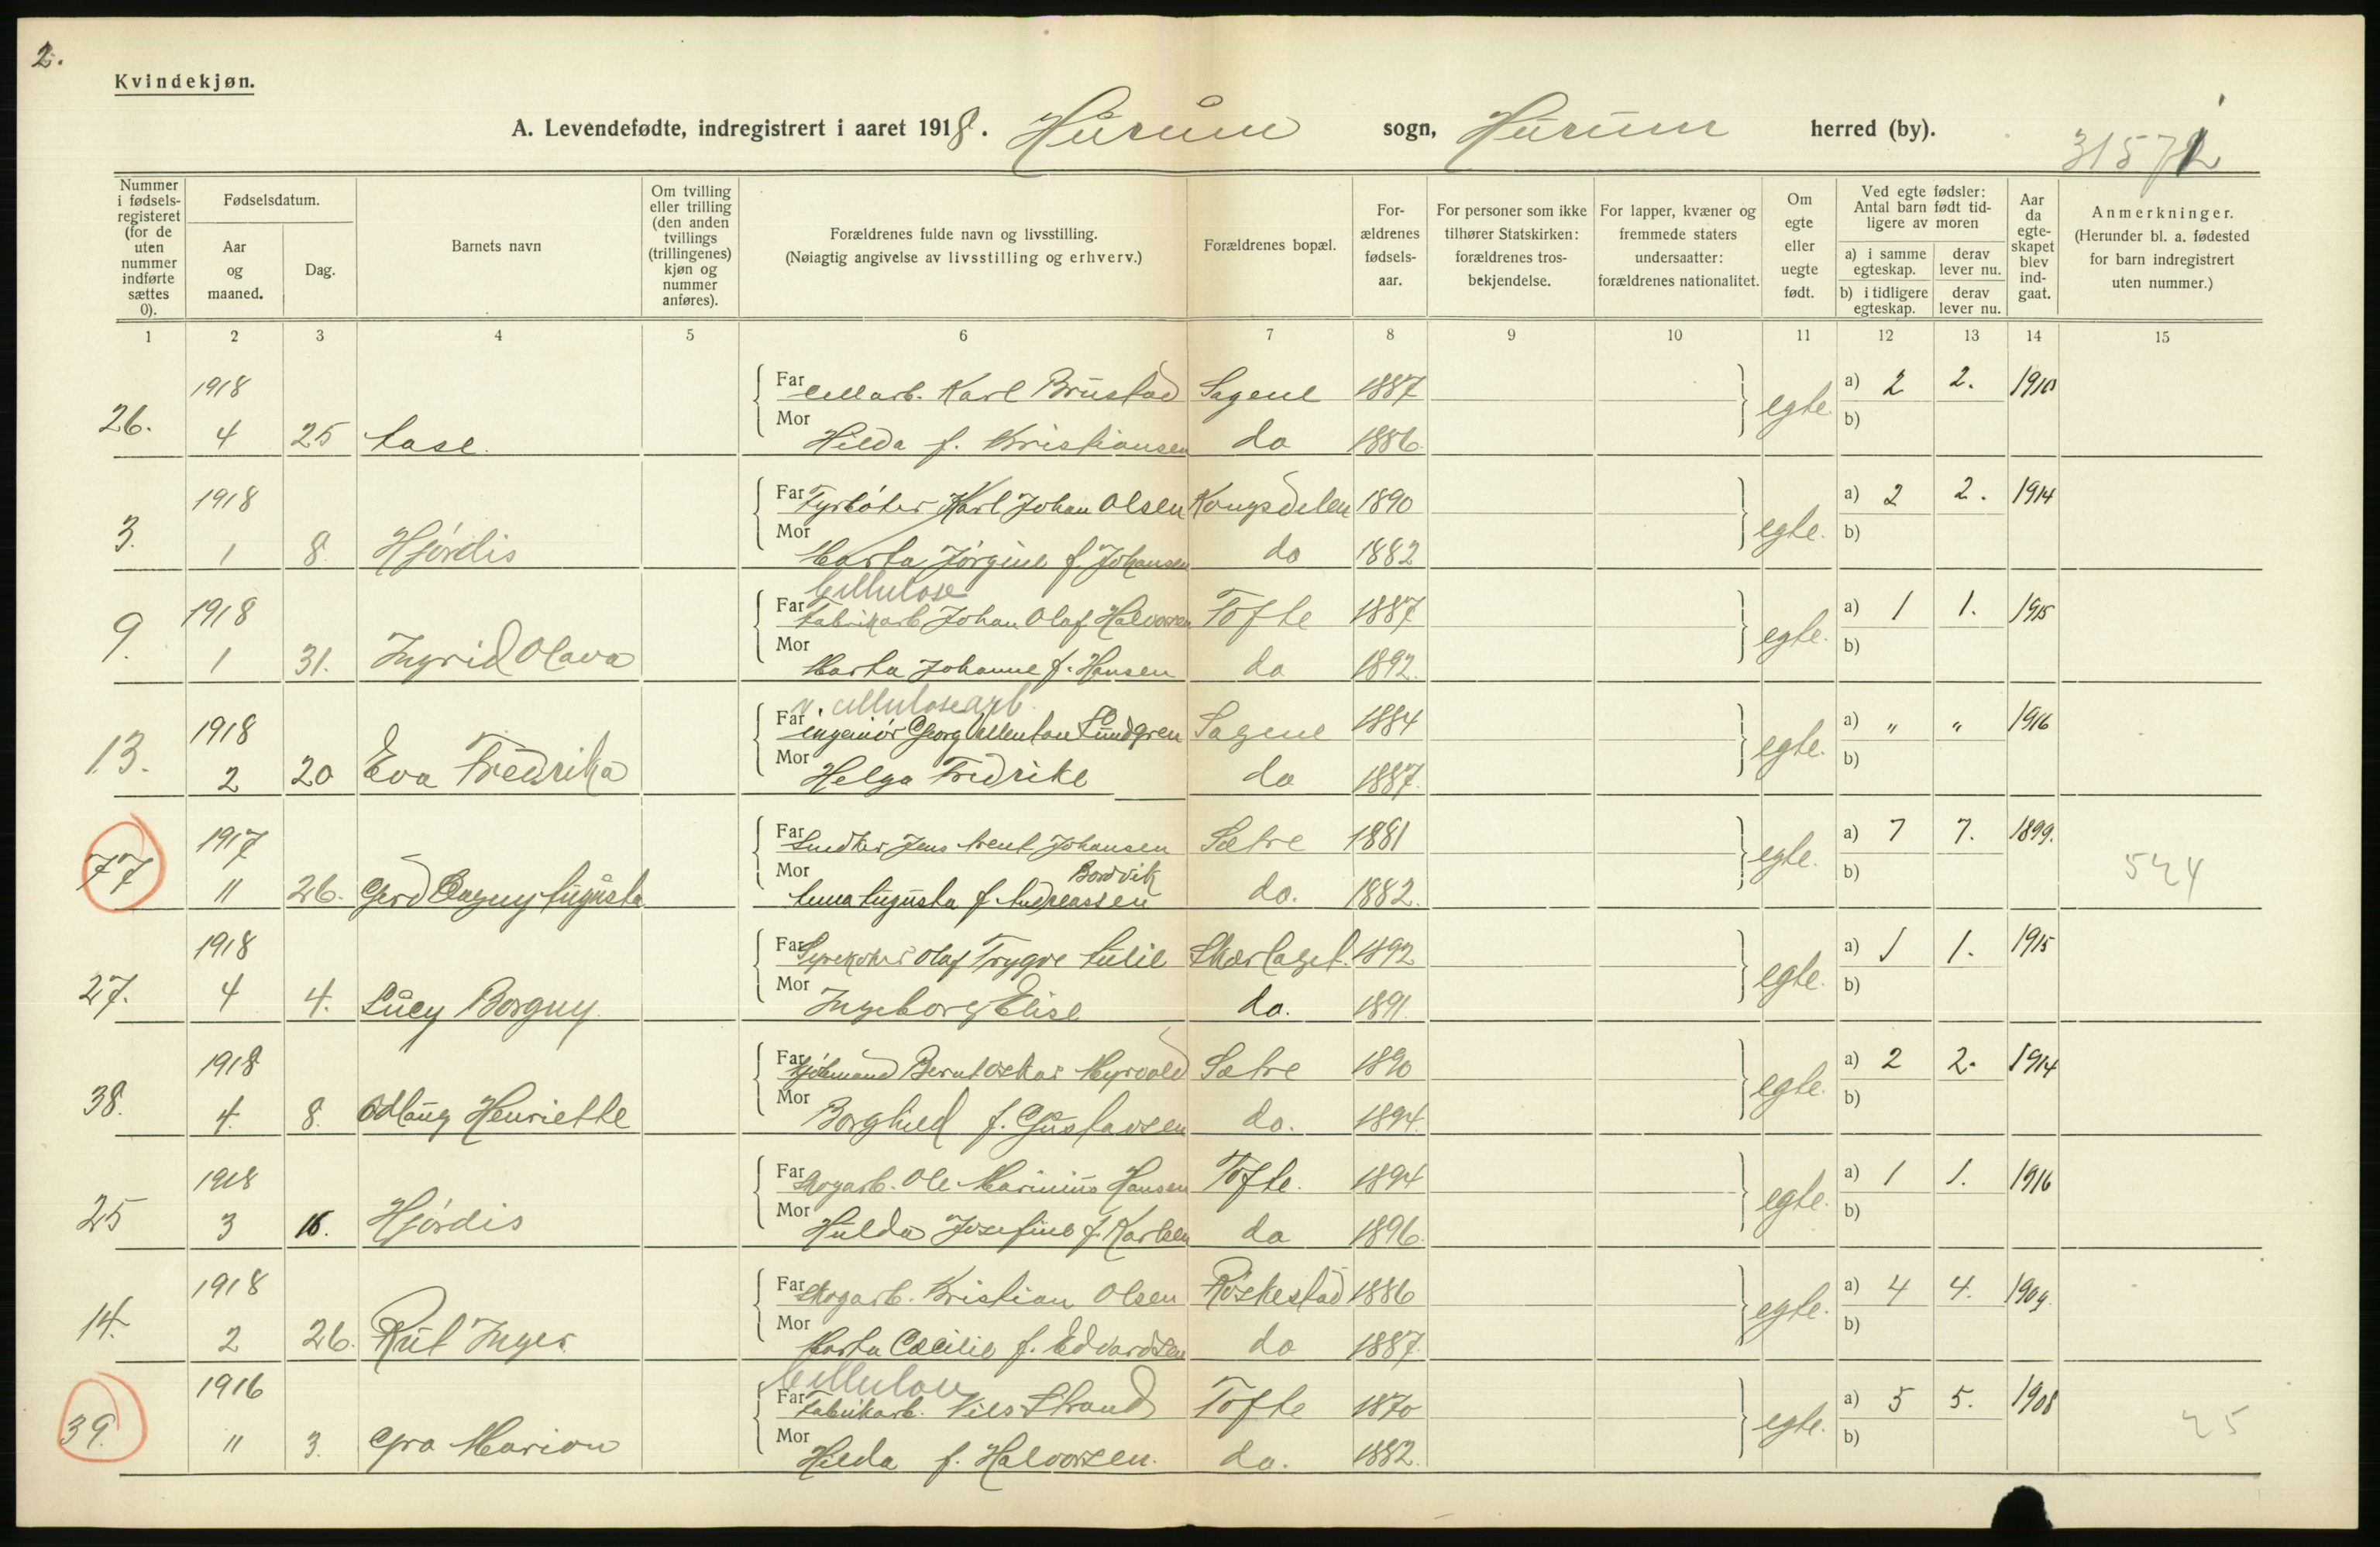 2.
Kvindekjøn.
A. Levendefødte, indregistrert i aaret 1918. Hurum sogn, Hurum herred (by).
3157
Nummer i fødsels-registeret (for de uten nummer indførte sættes 0).
Fødselsdatum.
Aar og maaned.
Dag.
Barnets navn
Om tvilling eller trilling (den anden tvillings (trillingenes) kjøn og nummer anføres).
Forældrenes fulde navn og livsstilling. (Nøiagtig angivelse av livsstilling og erhverv.)
Forældrenes bopæl.
For-ældrenes fødsels-aar.
For personer som ikke tilhører Statskirken: forældrenes tros-bekjendelse.
For lapper, kvæner og fremmede staters undersaatter: forældrenes nationalitet.
Om egte eller uegte født.
Ved egte fødsler: Antal barn født tid-ligere av moren
a) i samme egteskap.
derav lever nu.
b) i tidligere egteskap.
derav lever nu.
Aar da egte-skapet blev ind-gaat.
Anmerkninger. (Herunder bl. a. fødested for barn indregistrert uten nummer.)
1 2 3 4 5 6 7 8 9 10 11 12 13 14 15
1918 Far Cellarb. Karl Brustad Sagene 1887 a) 2 2. 1910
26. 4 25 Aase. Mor Hilda f. Kristiansen do 1886. egte. b)
1918 Far Fyrbøter Karl Johan Olsen Kongsdelen 1890 a) 2 2. 1914
3. 1 8. Hjördis Mor Marta Jørgine f. Johansen do 1882 egte. b)
Cellulose
1918 Far Fabrikarb Johan Olaf Halvorsen Tofte 1887 a) 1 1. 1915
9. 1 31. Ingrid Olava Mor Marta Johanne f. Hansen do 1892. egte. b)
v. cellulosearb.
1918 Far ingeniør Georg Lundgren Sagene 1884 a) " " 1916
13. 2 20 Eva Fredrika Mor Helga Fredrike do 1887. egte. b)
1917 Far Snedker Jens Arent Johansen Sætre 1881 a) 7 7. 1899.
Bordvik
77 11 26. Gerd Dagny Augusta Mor Anna Augusta f. Andreassen do. 1882. egte. b) 524
1918 Far Syrekoker Olaf Trygve Lulie 1892 a) 1 1. 1915
27. 4 4. Lucy Borgny. Mor Ingeborg Elise do. 1891. egte. b)
1918 Far Sjømand Bernt Oskar Myrvold Sætre 1890 a) 2 2. 1914
38. 4. 8. Odlaug Henriette Mor Borghild f. Gustavsen do. 1894. egte. b)
1918 Far Skogarb. Ole Marinius Hansen Tofte. 1894 a) 1 1. 1916
25 3 16. Hjördis Mor Hulda Josefine f. Karlsen do 1896. egte. b)
1918 Far Skogarb. Kristian Olsen Röskestad 1886 a) 4 4. 1909.
14. 2 26. Rut Inger. Mor Marta Cecilie f. Edvardsen do 1887. egte. b)
Cellulose
1916 Far Fabrikarb. Nils Strand Tofte 1870 a) 5 5. 1908
39. 11 3. Gra Marion Mor Hilda f. Halvorsen. do. 1882. egte. b) 25